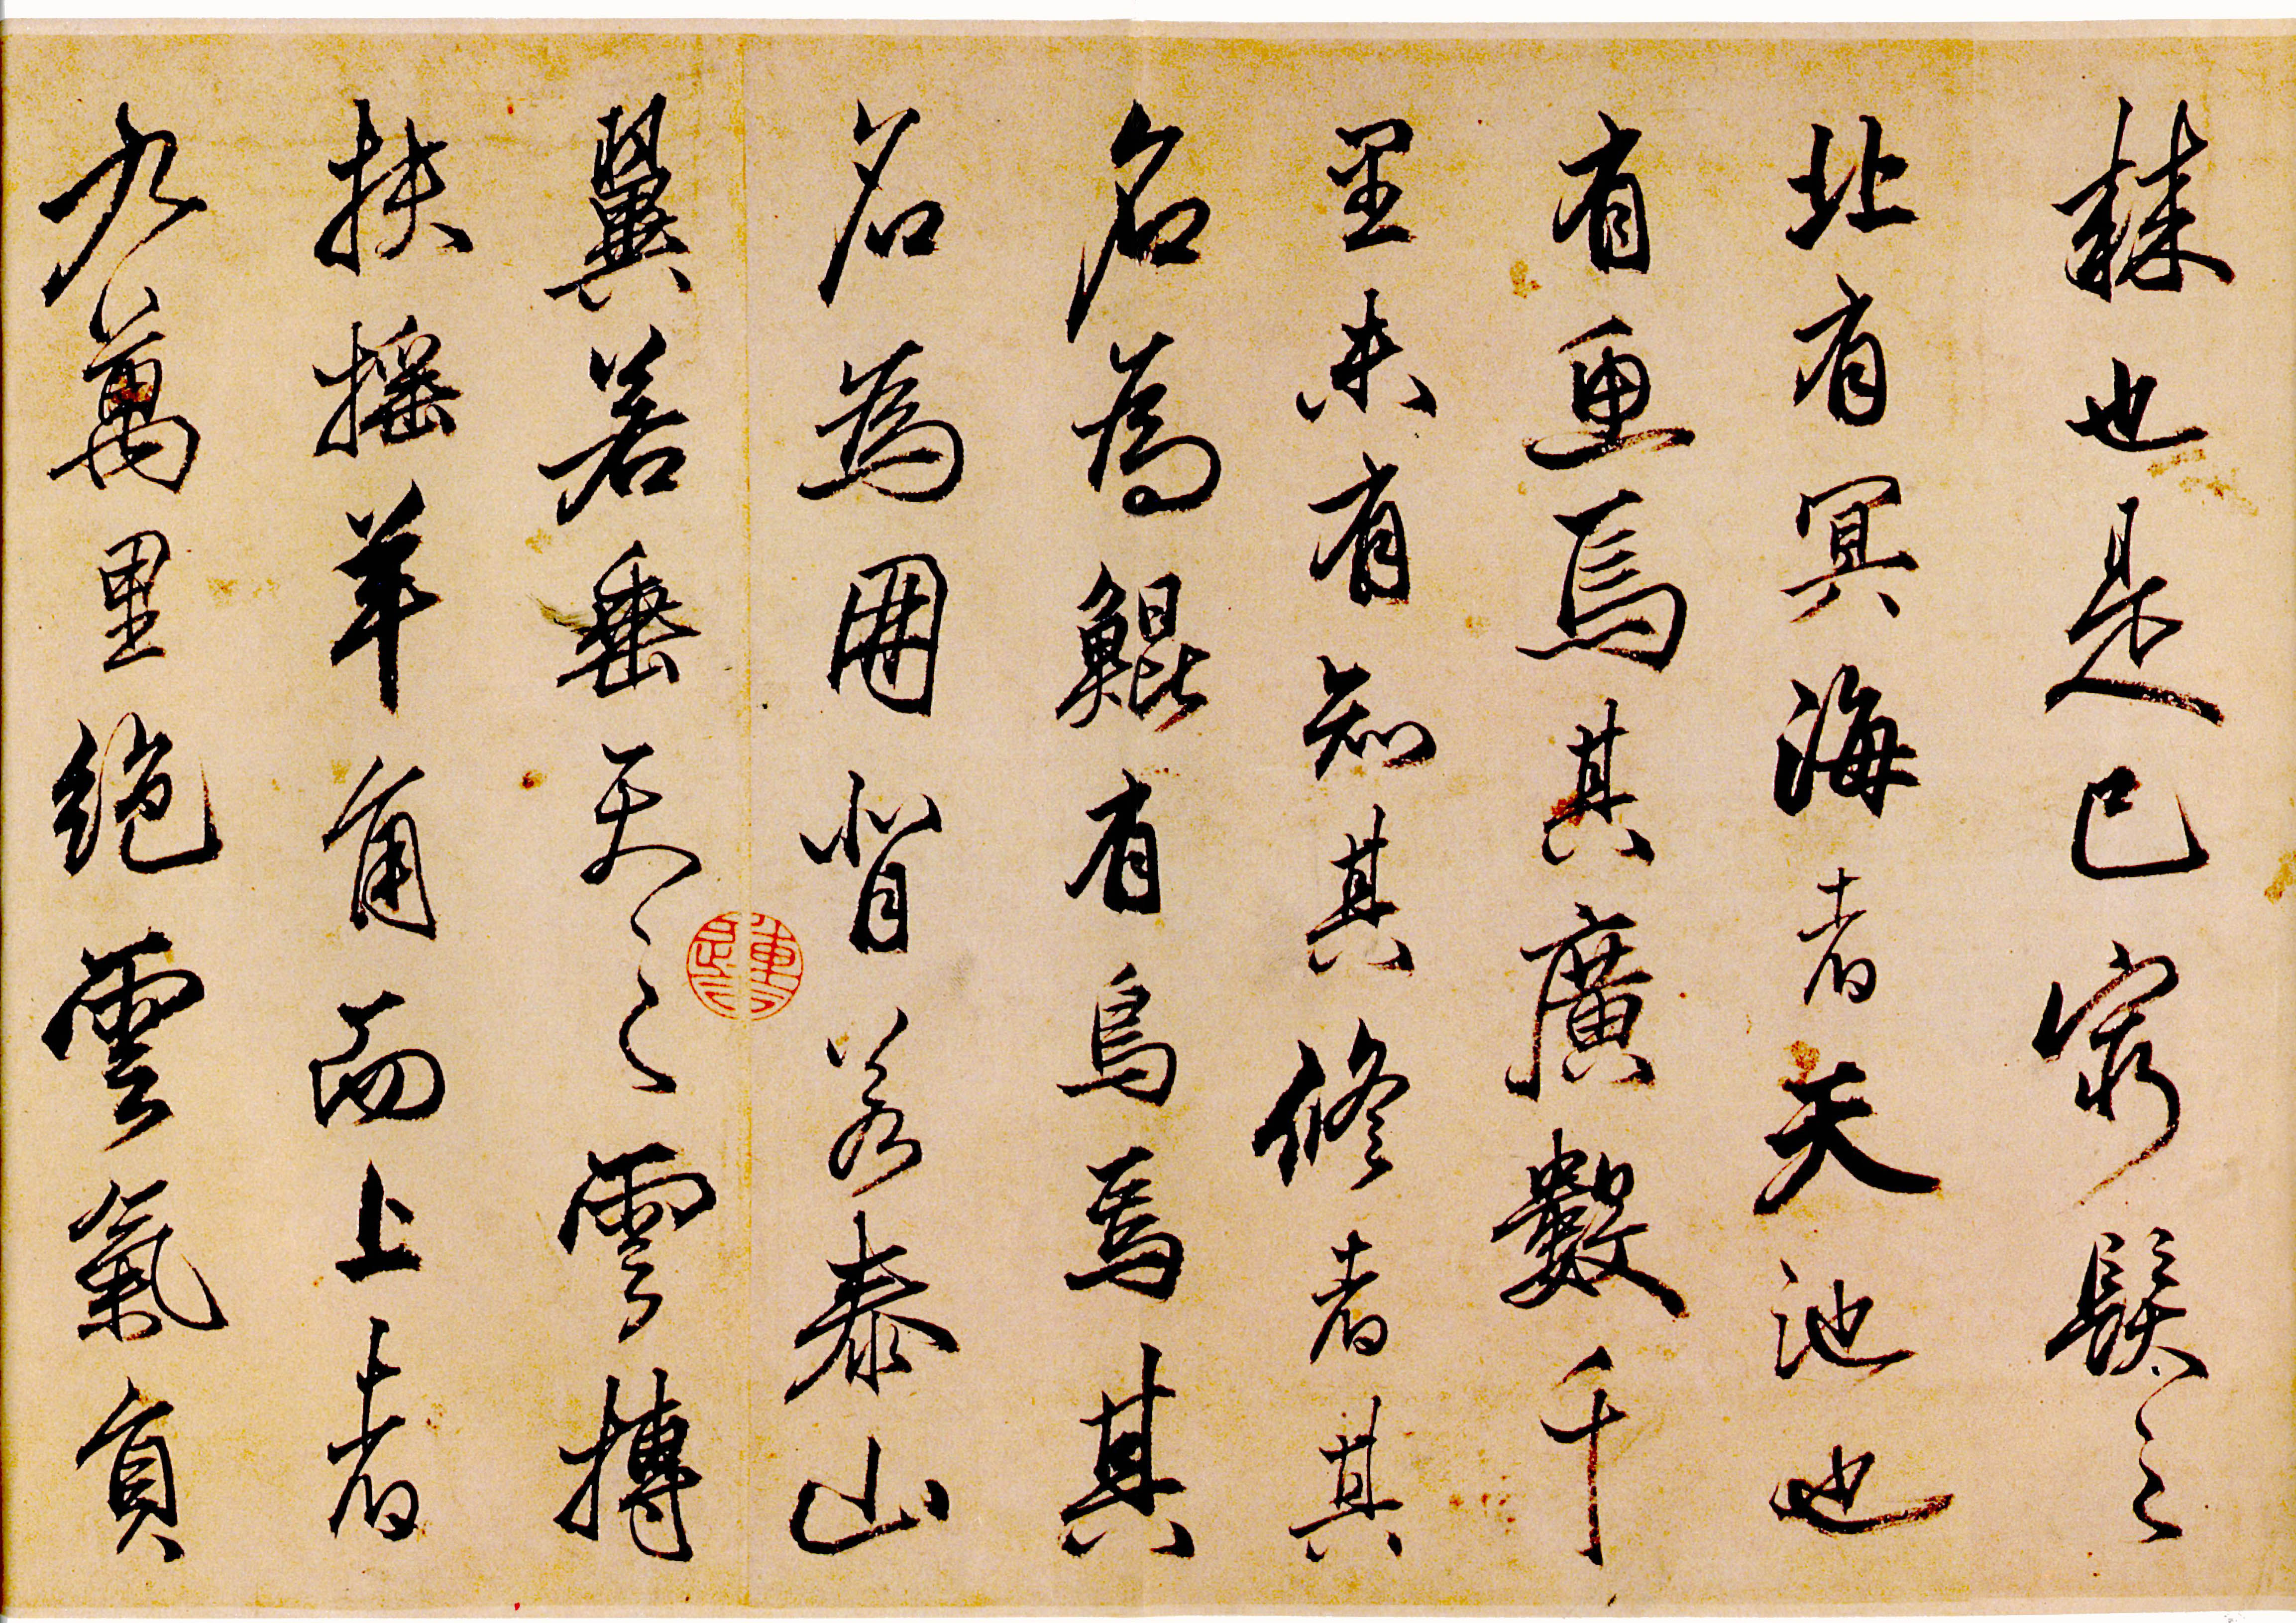 棘也是已窮髮之
北有冥海者天池也
有魚焉其廣數千
里未有知其修者其
名為鯤有鳥焉其
名為朋背若泰山
翼若垂天之雲摶
扶搖羊角而上者
九萬里絕雲氣負